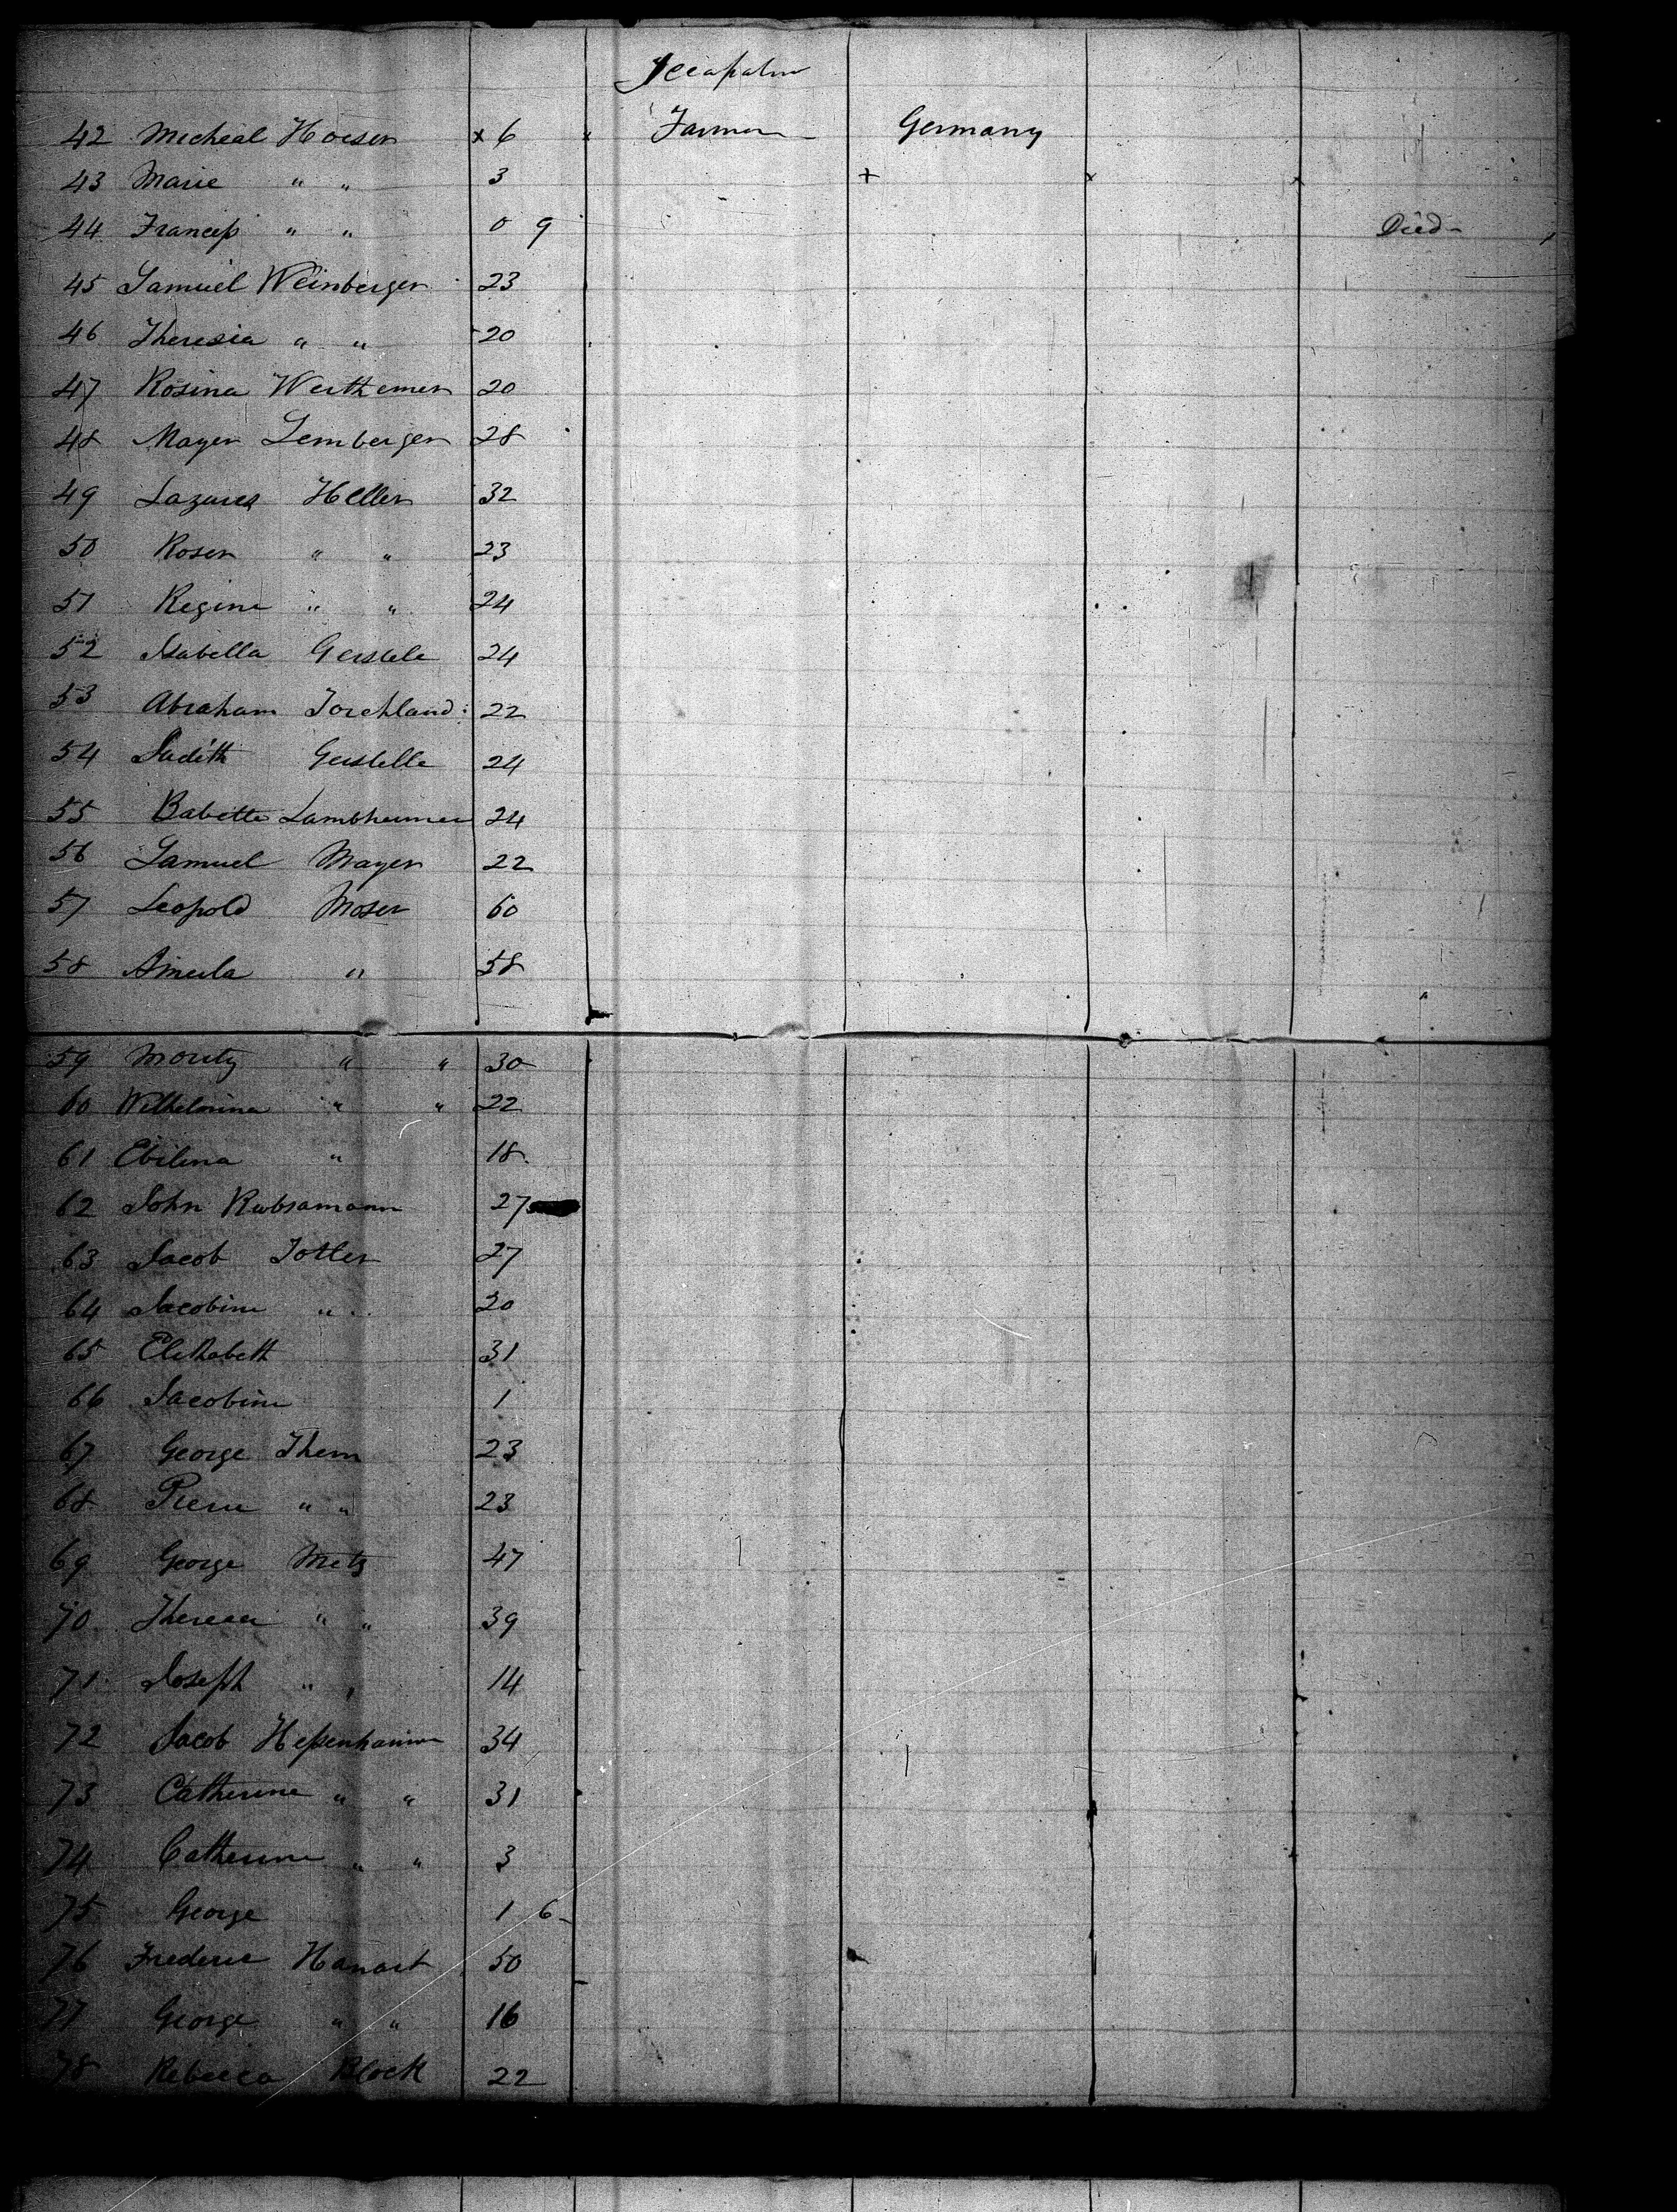 Occupation
42 Micheal Hoeser x 6 Farmer Germany
43 Marie " " 3
44 Francess " " 0 9 Died
45 Samuel Weinberger 23
46 Theresia " " 20
47 Rosina Werthemer 20
48 Mayer Lemberger 28
49 Lazarus Heller 32
50 Rosen " " 23
51 Regine " " 24
52 Isabella Gerstele 24
53 Abraham 22
54 Judith Gerstelle 24
55 Babette 24
56 Samuel Mayer 22
57 Leopold Moser 60
58 " 58
59 Moritz " " 30
60 Wilhelmina " " 22
61 " 18
62 John Rubsamann 27
63 Jacob 27
64 Jacobine " 20
65 Elethabeth 31
66 Jacobine 1
67 George Them 23
68 Pierre " " 23
69 George Metz 47
70 " " 39
71 Joseph " " 14
72 Jacob 34
73 Catherine " " 31
74 Catherine " " 3
75 George 1 6
76 Frederic Hanart 50
77 George " " 16
78 Rebecca Block 22